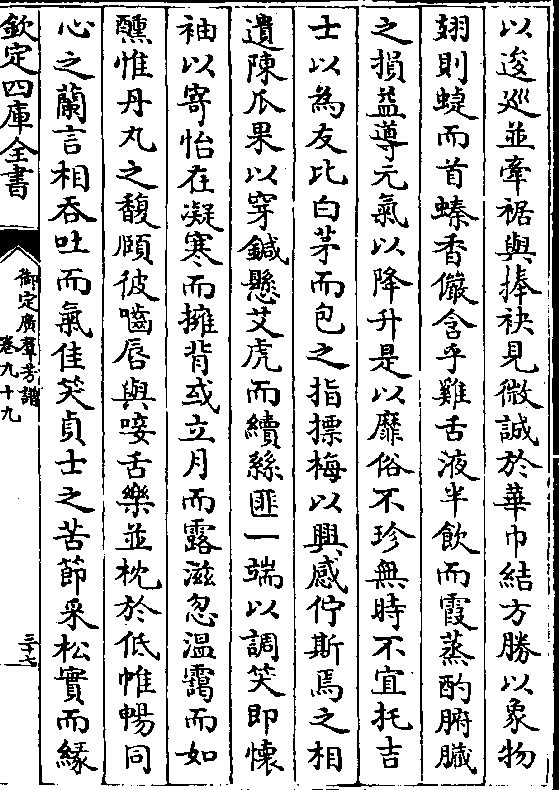 以逡巡並牽裾與捧袂見微誠於華巾結方勝以象物
翅則蜨而首螓香儼含乎雞舌液半飲而霞蒸酌腑臟
之損益導元氣以降升是以靡俗不珍無時不宜托吉
士以為友比白茅而包之指摽梅以興感佇斯焉之相
遺陳瓜果以穿鍼懸艾虎而續絲匪一端以調笑即懷
袖以寄怡在凝寒而擁背或立月而露滋忽溫靄而如
醺惟丹丸之馥頤彼嚙唇與唼舌樂並枕於低帷暢同
心之蘭言相吞吐而氣佳笑貞士之苦節采松實而緣
欽定四庫全書
御定廣羣芳譜
卷九十九
三十七